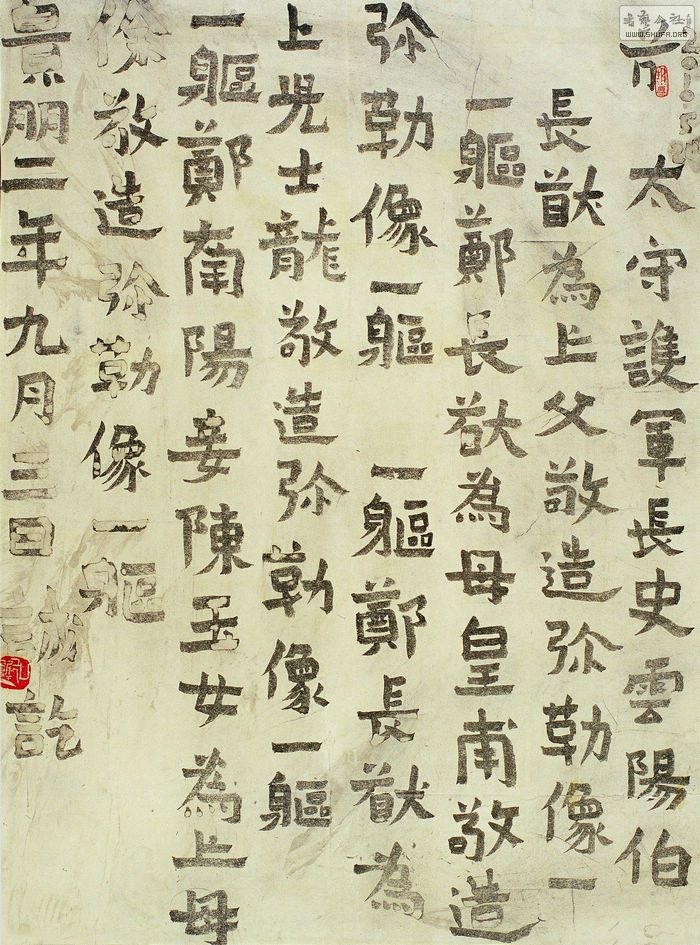 前 太守護軍長史雲陽伯
長猷為亡父敬造弥勒像一
一軀鄭長猷為母皇甫敬造
弥勒像一軀 一軀鄭長猷為
亡児士龍敬造弥勒像一軀
一軀鄭南陽妾陳玉女為亡母
徐敬造弥勒像一軀
景明二年九月三日誠訖
書藝公社
WWW.SHUFA.ORG